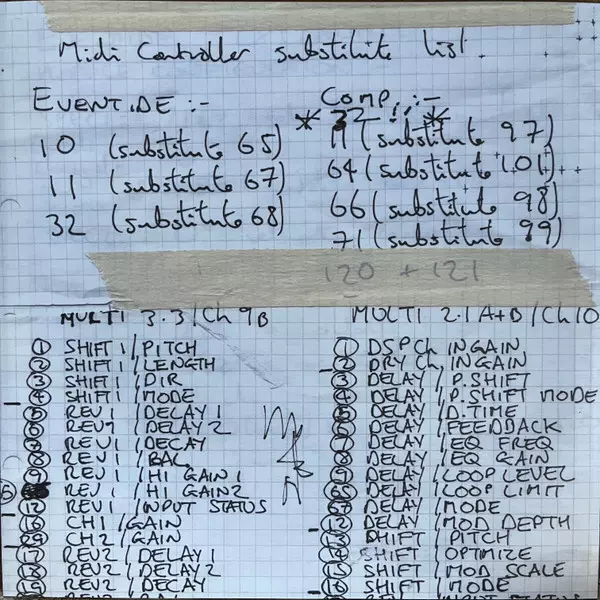 Midi Controller substitute list.
EVENTIDE :-
10 (substitute 65)
11 (substitute 67)
32 (substitute 68)
COMP :-
* 32 !! *
11 (substitute 97)
64 (substitute 101)
66 (substitute 98)
71 (substitute 99)
120 + 121
MULTI 3.3 / Ch 9B
1 SHIFT 1 / PITCH
2 SHIFT 1 / LENGTH
3 SHIFT 1 / DIR
4 SHIFT 1 / MODE
5 REV 1 / DELAY 1
6 REV 1 / DELAY 2
REV 1 / DECAY
8 REV 1 / BAL
9 REV 1 / HI GAIN 1
REV 1 / HI GAIN 2
12 REV 1 / INPUT STATUS
CH 1 / GAIN
CH 2 / GAIN
REV 2 / DELAY 1
REV 2 / DELAY 2
REV 2 / DECAY
MULTI 2.1 A+B / Ch 10
1 DSP Ch INGAIN
2 DRY Ch INGAIN
3 DELAY / P.SHIFT
4 DELAY / P.SHIFT MODE
5 DELAY / D.TIME
6 DELAY / FEEDBACK
DELAY / EQ FREQ
8 DELAY / EQ GAIN
9 DELAY / LOOP LEVEL
DELAY / LOOP LIMIT
DELAY / MODE
12 DELAY / MOD DEPTH
13 SHIFT / PITCH
SHIFT / OPTIMIZE
SHIFT / MOD SCALE
16 SHIFT / MODE